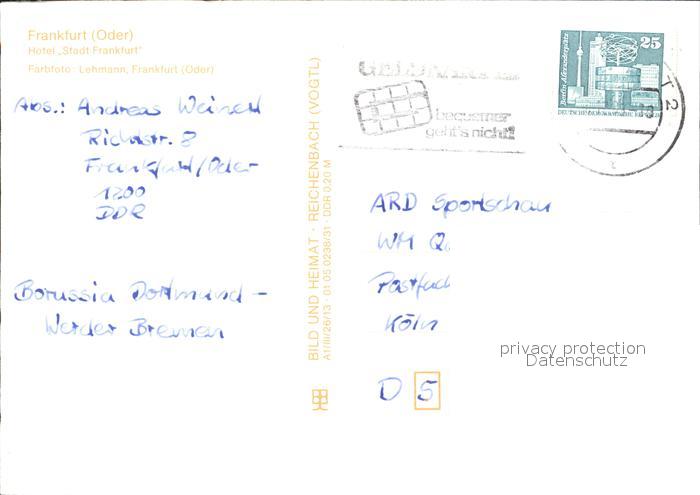 Frankfurt (Oder)
Hotel „Stadt Frankfurt"
Farbfoto: Lehmann, Frankfurt (Oder)
Abs.: Andreas
Richtstr. 8
Frankfurt/Oder
1200
DDR
Borussia Dortmund –
Werder Bremen
BILD UND HEIMAT · REICHENBACH (VOGTL)
A1/III/26/13 · 01 05 0238/31 · DDR 0,20 M
bequemer
geht's nicht!
25
Berlin, Alexanderplatz
DEUTSCHE DEMOKRATISCHE REPUBLIK
T 2
ARD Sportschau
WM Q.
Postfach
Köln
D 5
privacy protection
Datenschutz